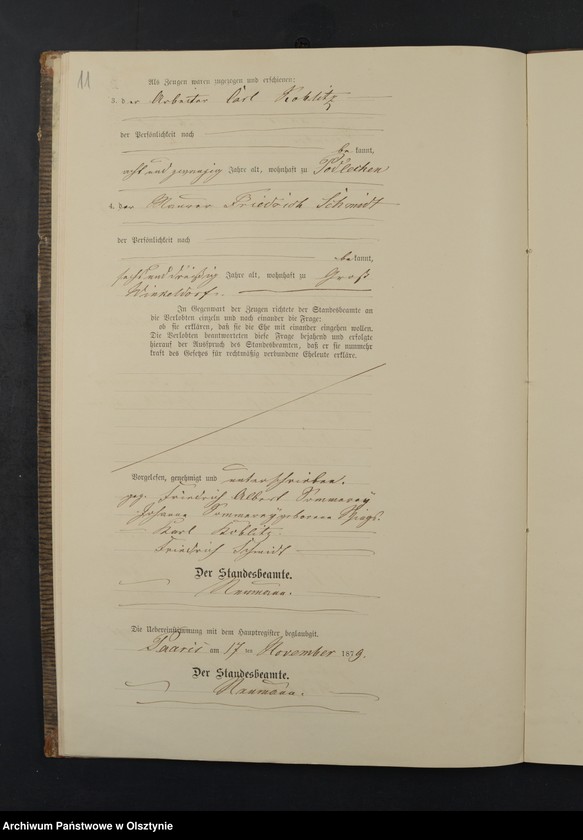 11
Als Zeugen waren zugezogen und erschienen:
3. der Arbeiter Carl Koblitz
der Persönlichkeit nach
be kannt,
acht und zwanzig Jahre alt, wohnhaft zu Podlechen
4. der Maurer Friedrich Schmidt
der Persönlichkeit nach
be kannt,
sechs und dreißig Jahre alt, wohnhaft zu Groß
Winkeldorf.
In Gegenwart der Zeugen richtete der Standesbeamte an
die Verlobten einzeln und nach einander die Frage:
ob sie erklären, daß sie die Ehe mit einander eingehen wollen.
Die Verlobten beantworteten diese Frage bejahend und erfolgte
hierauf der Ausspruch des Standesbeamten, daß er sie nunmehr
kraft des Gesetzes für rechtmäßig verbundene Eheleute erkläre.
Vorgelesen, genehmigt und unterschrieben.
gez. Friedrich Albert Sommerey
Johanne Sommerey geborene
Karl Koblitz
Friedrich Schmidt
Der Standesbeamte.
Neumann.
Die Uebereinstimmung mit dem Hauptregister beglaubigt.
Paaris am 17 ten November 1879.
Der Standesbeamte.
Neumann.
Archiwum Państwowe w Olsztynie